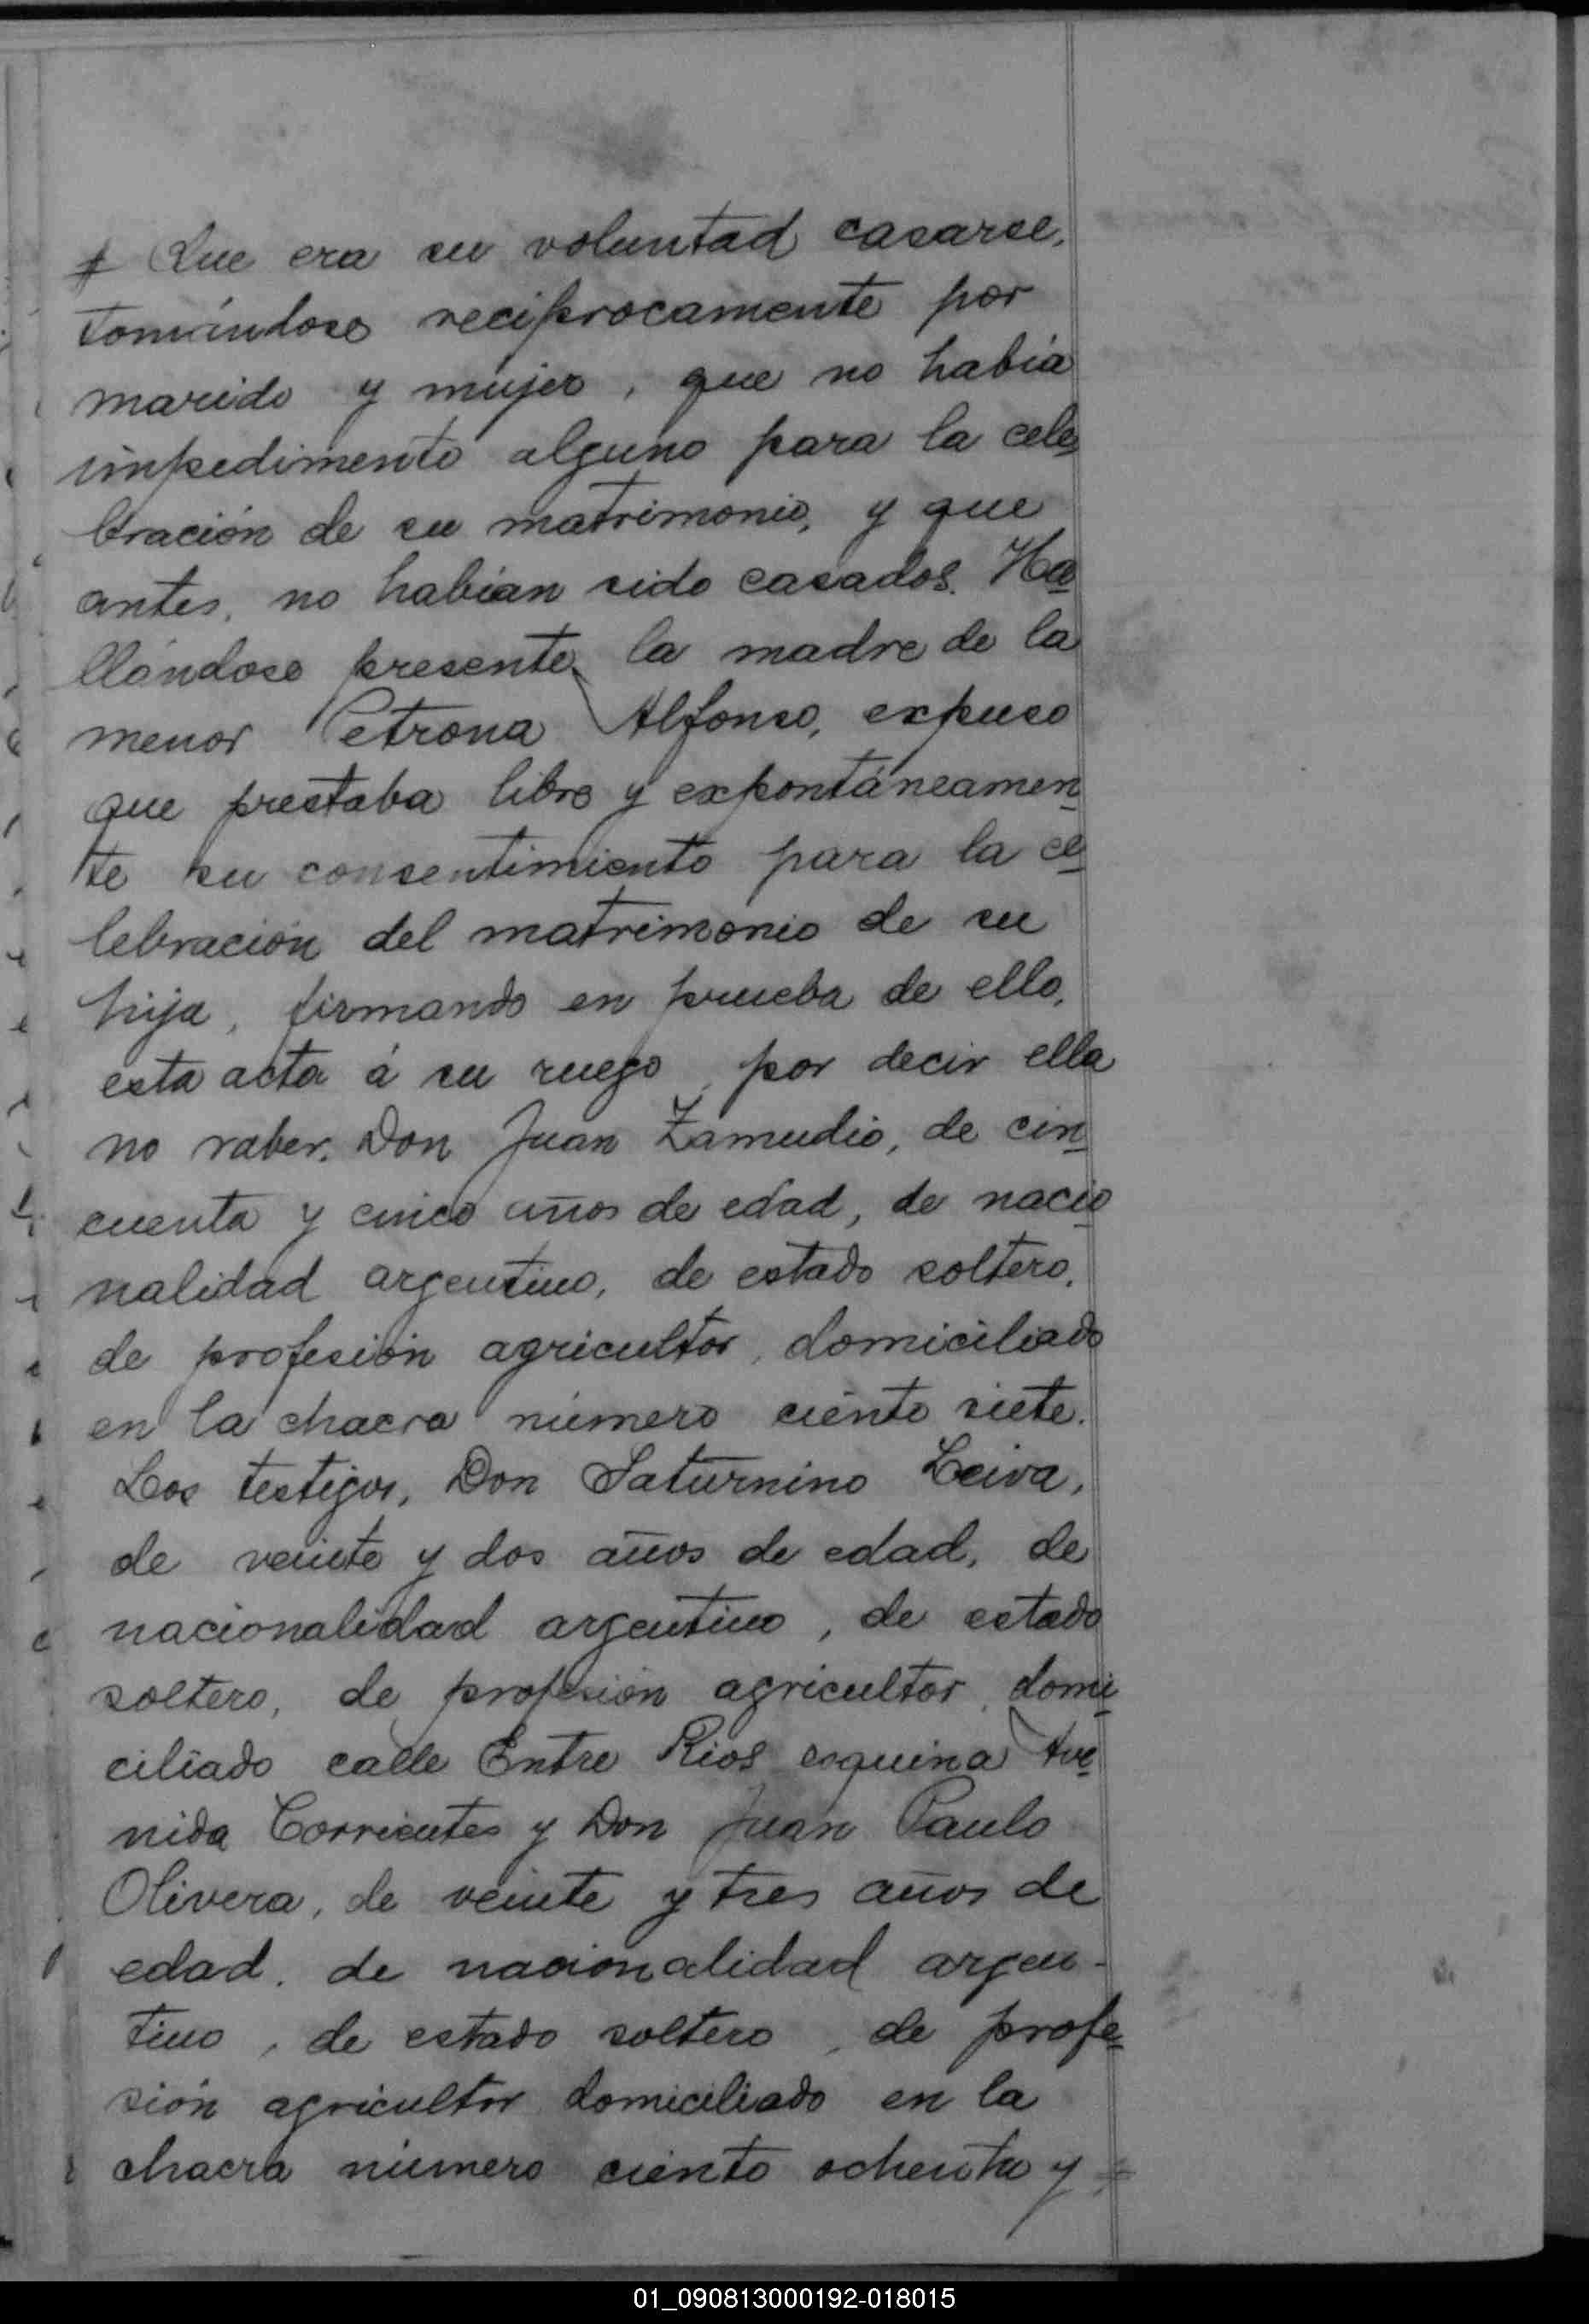 # Que era su voluntad casarse,
tomándose reciprocamente por
marido y mujer, que no había
impedimento alguno para la cele
bración de su matrimonio, y que
antes, no habían sido casados. Ha
llándose presente, la madre de la
menor Petrona Alfonso, expuso
que prestaba libre y expontáneamen
te su consentimiento para la ce
lebración del matrimonio de su
hija, firmando en prueba de ello,
esta acta á su ruego, por decir ella
no saber, Don Juan Zamudio, de cin
cuenta y cinco años de edad, de nacio
nalidad argentino, de estado soltero,
de profesión agricultor, domiciliado
en la chacra número ciento siete.
Los testigos, Don Saturnino Leiva,
de veinte y dos años de edad, de
nacionalidad argentino, de estado
soltero, de profesión agricultor, domi
ciliado calle Entre Rios esquina Ave
nida Corrientes y Don Juan Paulo
Olivera, de veinte y tres años de
edad, de nacionalidad argen-
tino, de estado soltero, de profe
sión agricultor domiciliado en la
chacra número ciento ochenta y #
01_090813000192-018015